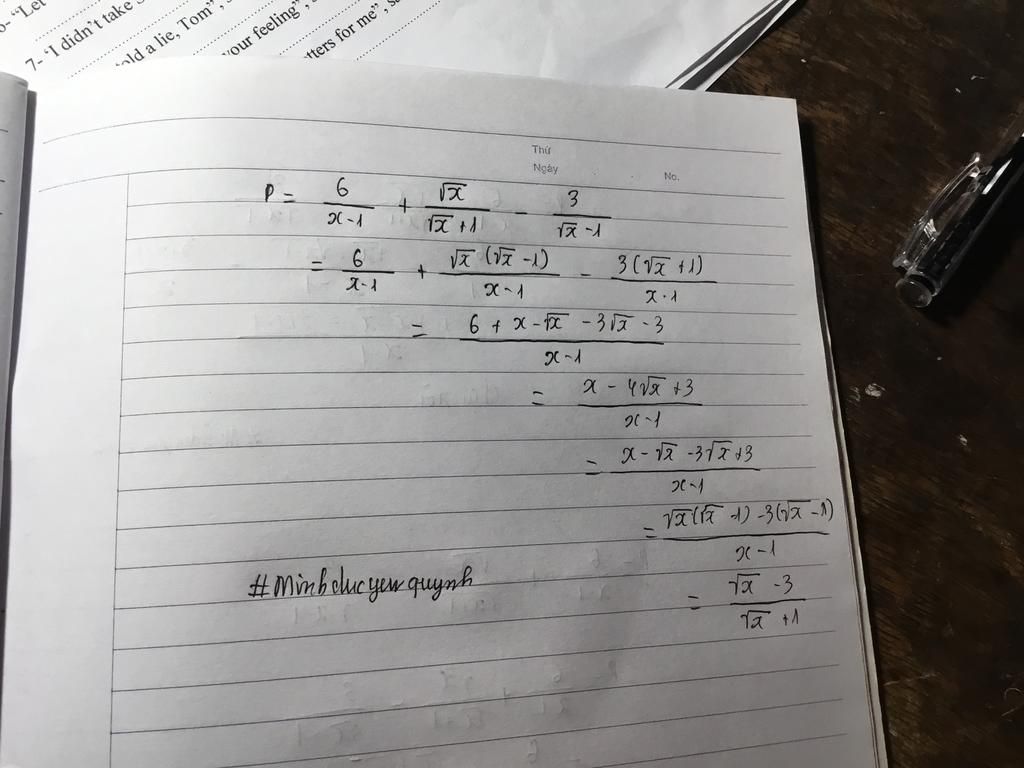 6- “Let
7- “I didn’t take
old a lie, Tom”,
your feeling”,
tters for me”,
Thứ
Ngày
No.
P = 6/(x-1) + √x/(√x+1) - 3/(√x-1)
= 6/(x-1) + √x(√x-1)/(x-1) - 3(√x+1)/(x-1)
= (6 + x - √x - 3√x - 3)/(x-1)
= (x - 4√x + 3)/(x-1)
= (x - √x - 3√x + 3)/(x-1)
= (√x(√x-1) - 3(√x-1))/(x-1)
= (√x - 3)/(√x + 1)
#Minhducyeuquynh